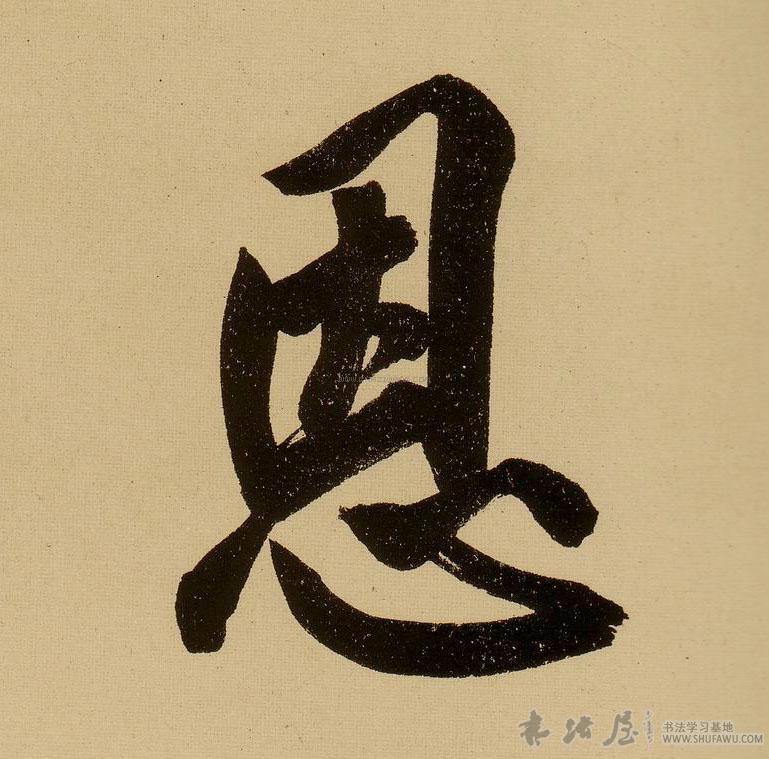 恩
书法屋
书法学习基地
WWW.SHUFAWU.COM